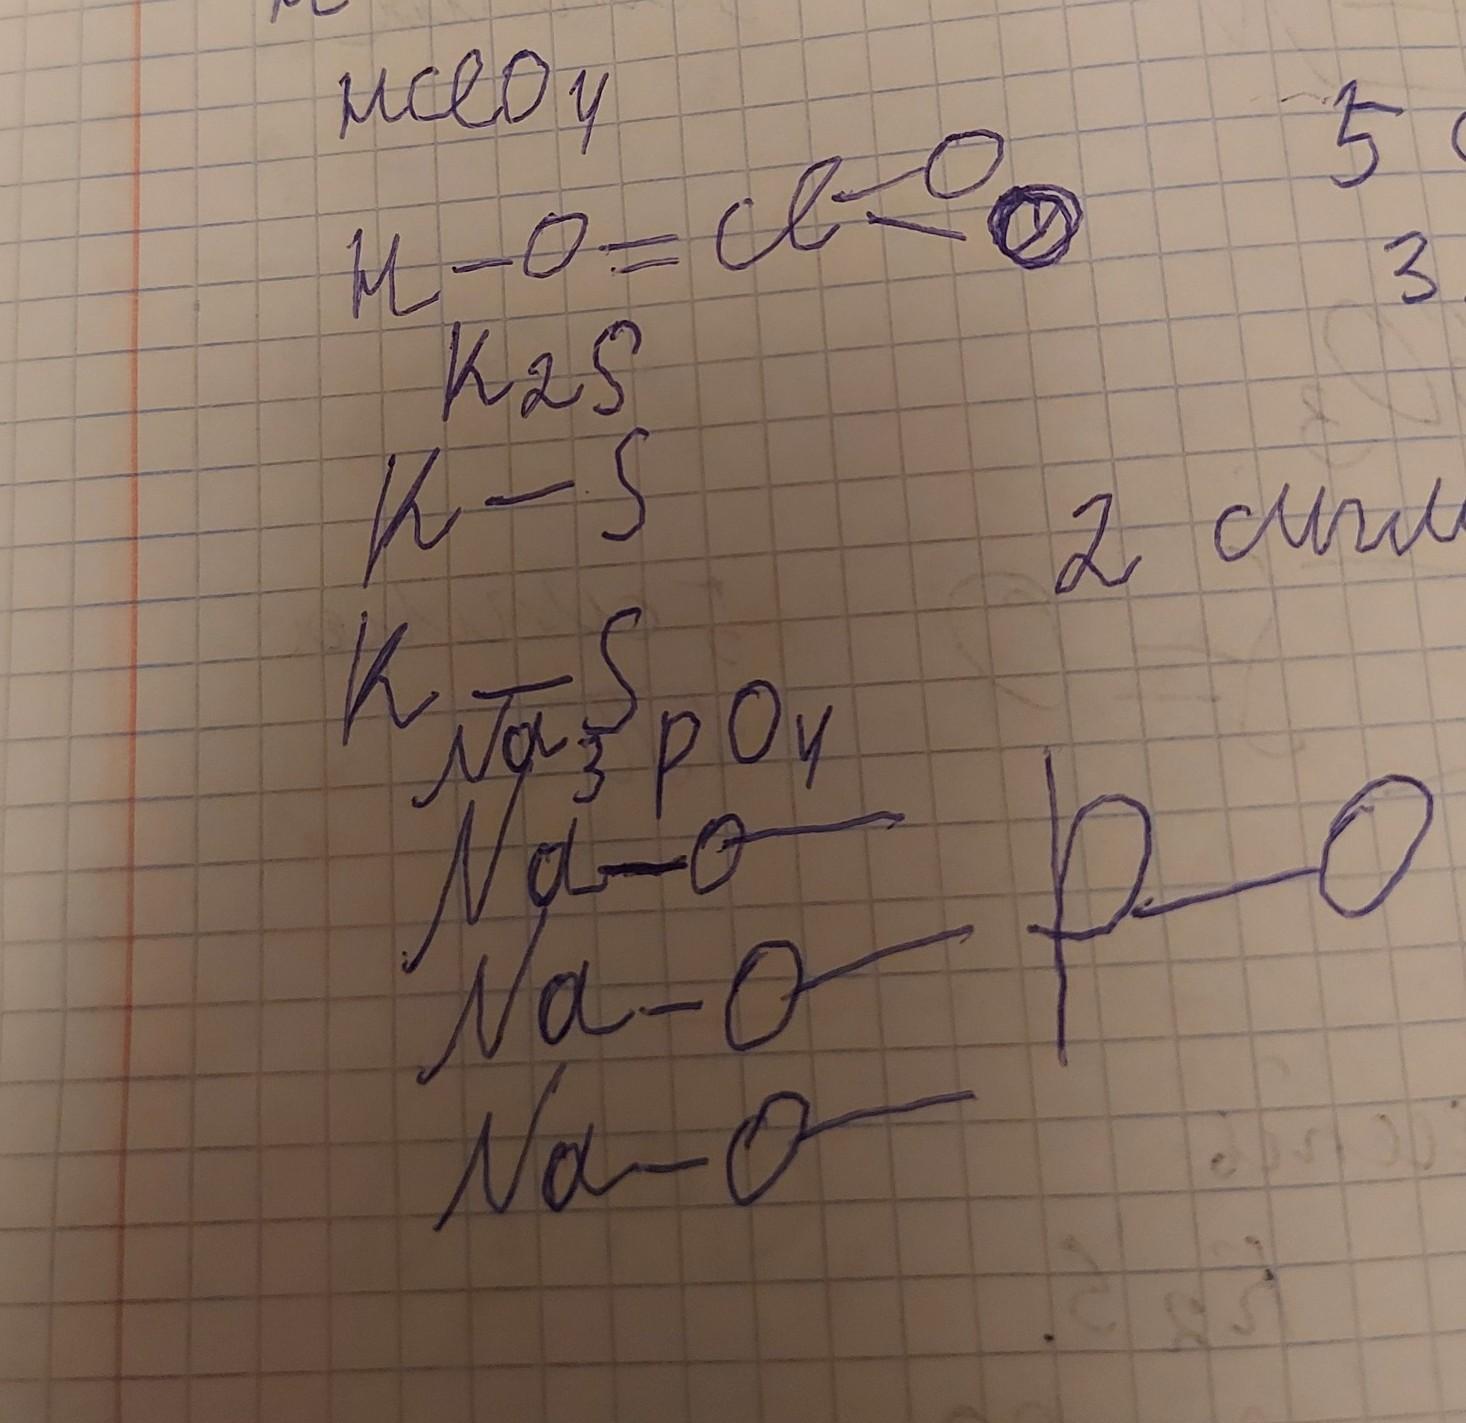 HClO4
H-O=Cl-O
K2S
K-S
K-S
Na3PO4
Na-O- P-O
Na-O-
Na-O-
5
3
2